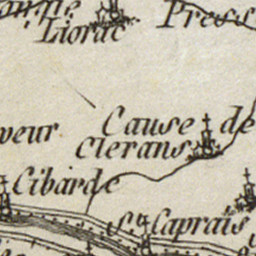 Liorac
Press
Cause de
Clerans
veur
Cibarde
Ste Caprais